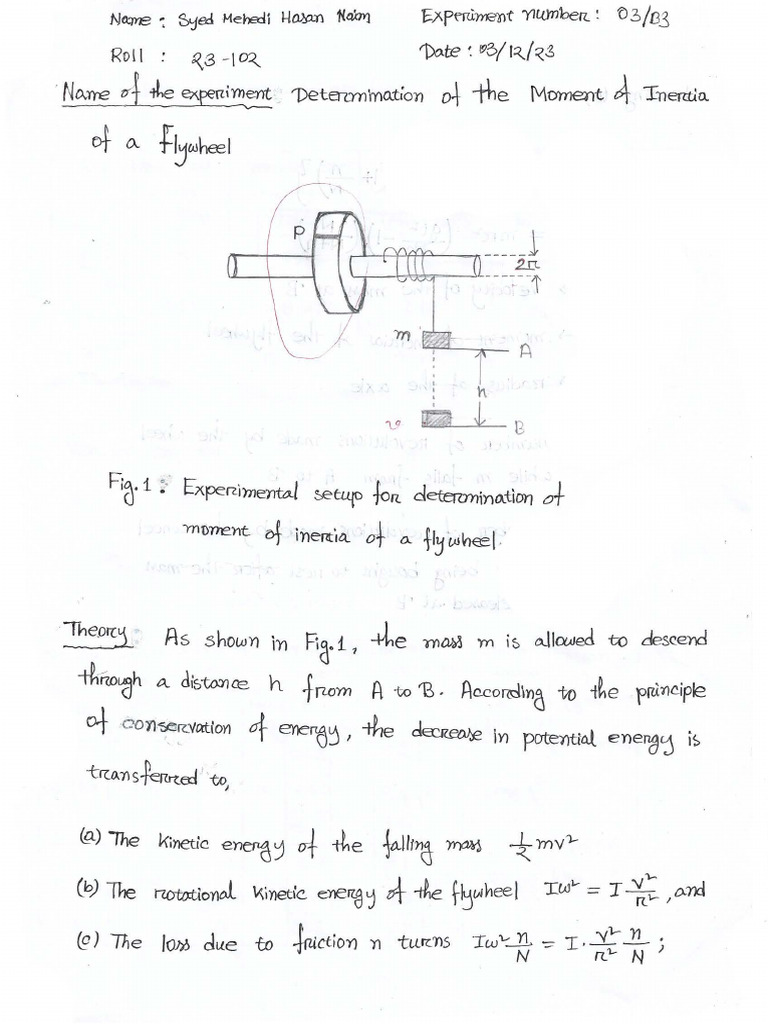 Name : Syed Mehedi Hasan Naim Experiment number : 03/B3
Roll : 23-102 Date : 03/12/23
Name of the experiment Determination of the Moment of Inertia
of a Flywheel
P
2r
m
A
h
v
B
Fig.1 : Experimental setup for determination of
moment of inertia of a flywheel.
Theory : As shown in Fig.1, the mass m is allowed to descend
through a distance h from A to B. According to the principle
of conservation of energy, the decrease in potential energy is
transferred to,
(a) The kinetic energy of the falling mass ½mv²
(b) The rotational kinetic energy of the flywheel Iω² = I v²/r², and
(c) The loss due to friction n turns Iω² n/N = I · v²/r² n/N ;